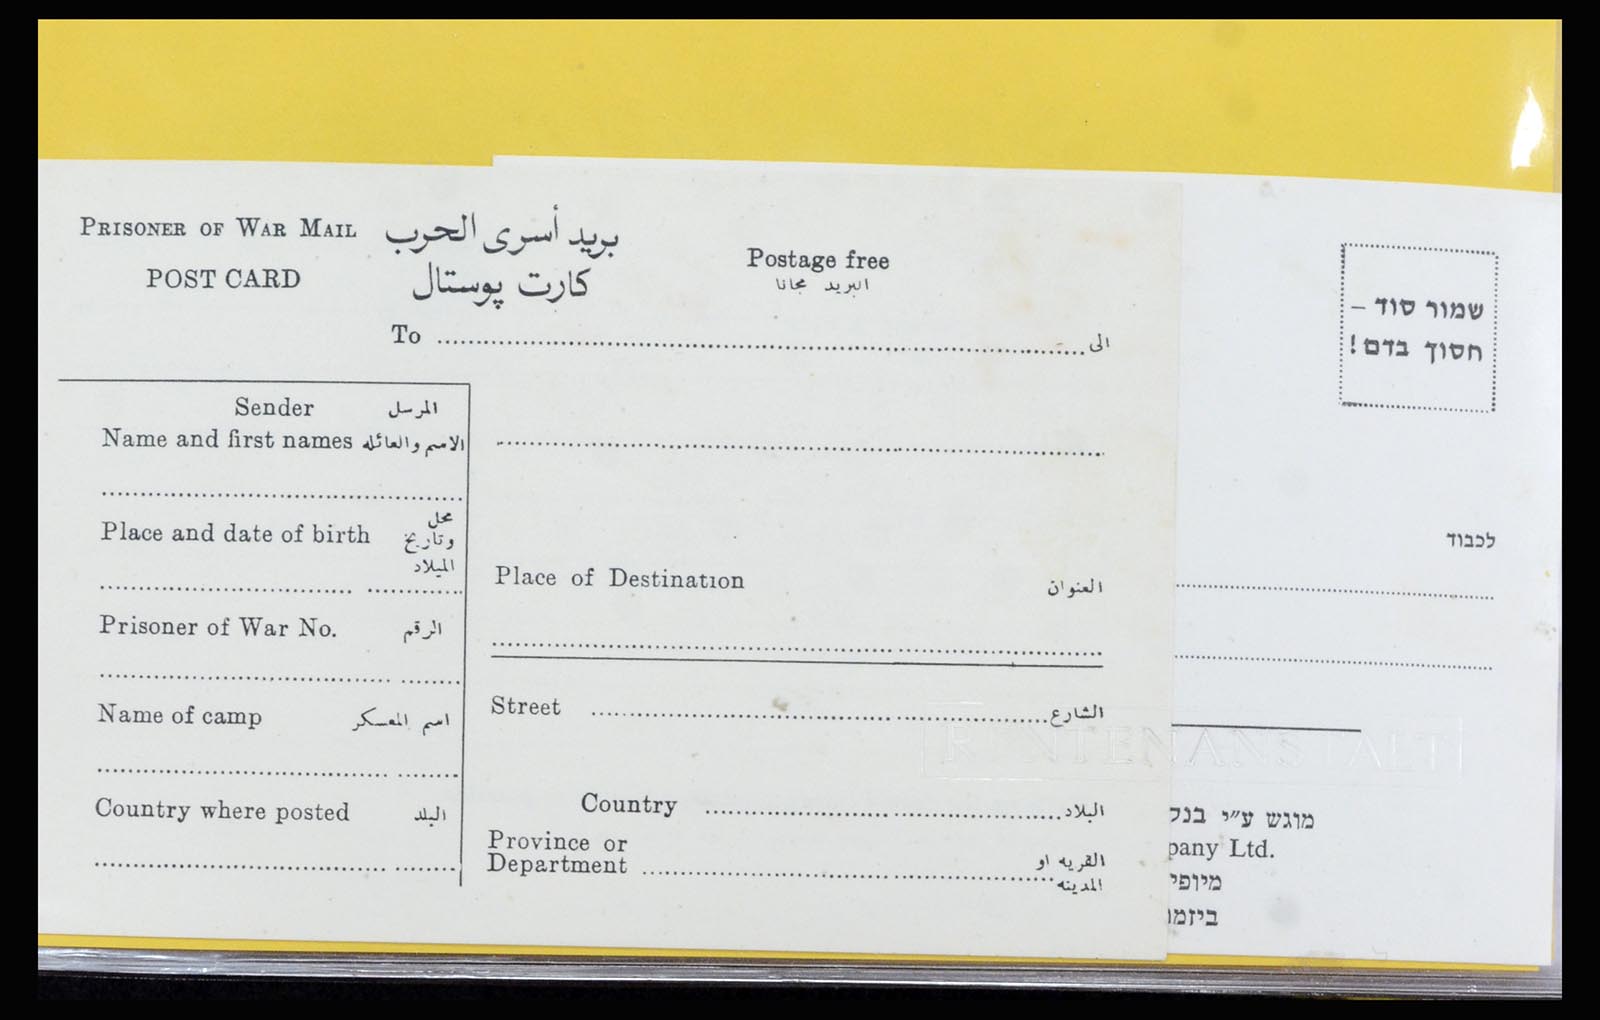 PRISONER OF WAR MAIL بريد أسرى الحرب
POST CARD كارت پوستال
Postage free
البريد مجانا
To الى
Sender المرسل
Name and first names الاسم والعائله
Place and date of birth محل وتاريخ الميلاد
Prisoner of War No. الرقم
Name of camp اسم المعسكر
Country where posted البلد
Place of Destination العنوان
Street الشارع
Country البلاد
Province or Department القريه او المدينه
שמור סוד –
חסוך בדם!
לכבוד
RENTENANSTALT
מוגש ע״י בנק
pany Ltd.
מיופי
ביזמ